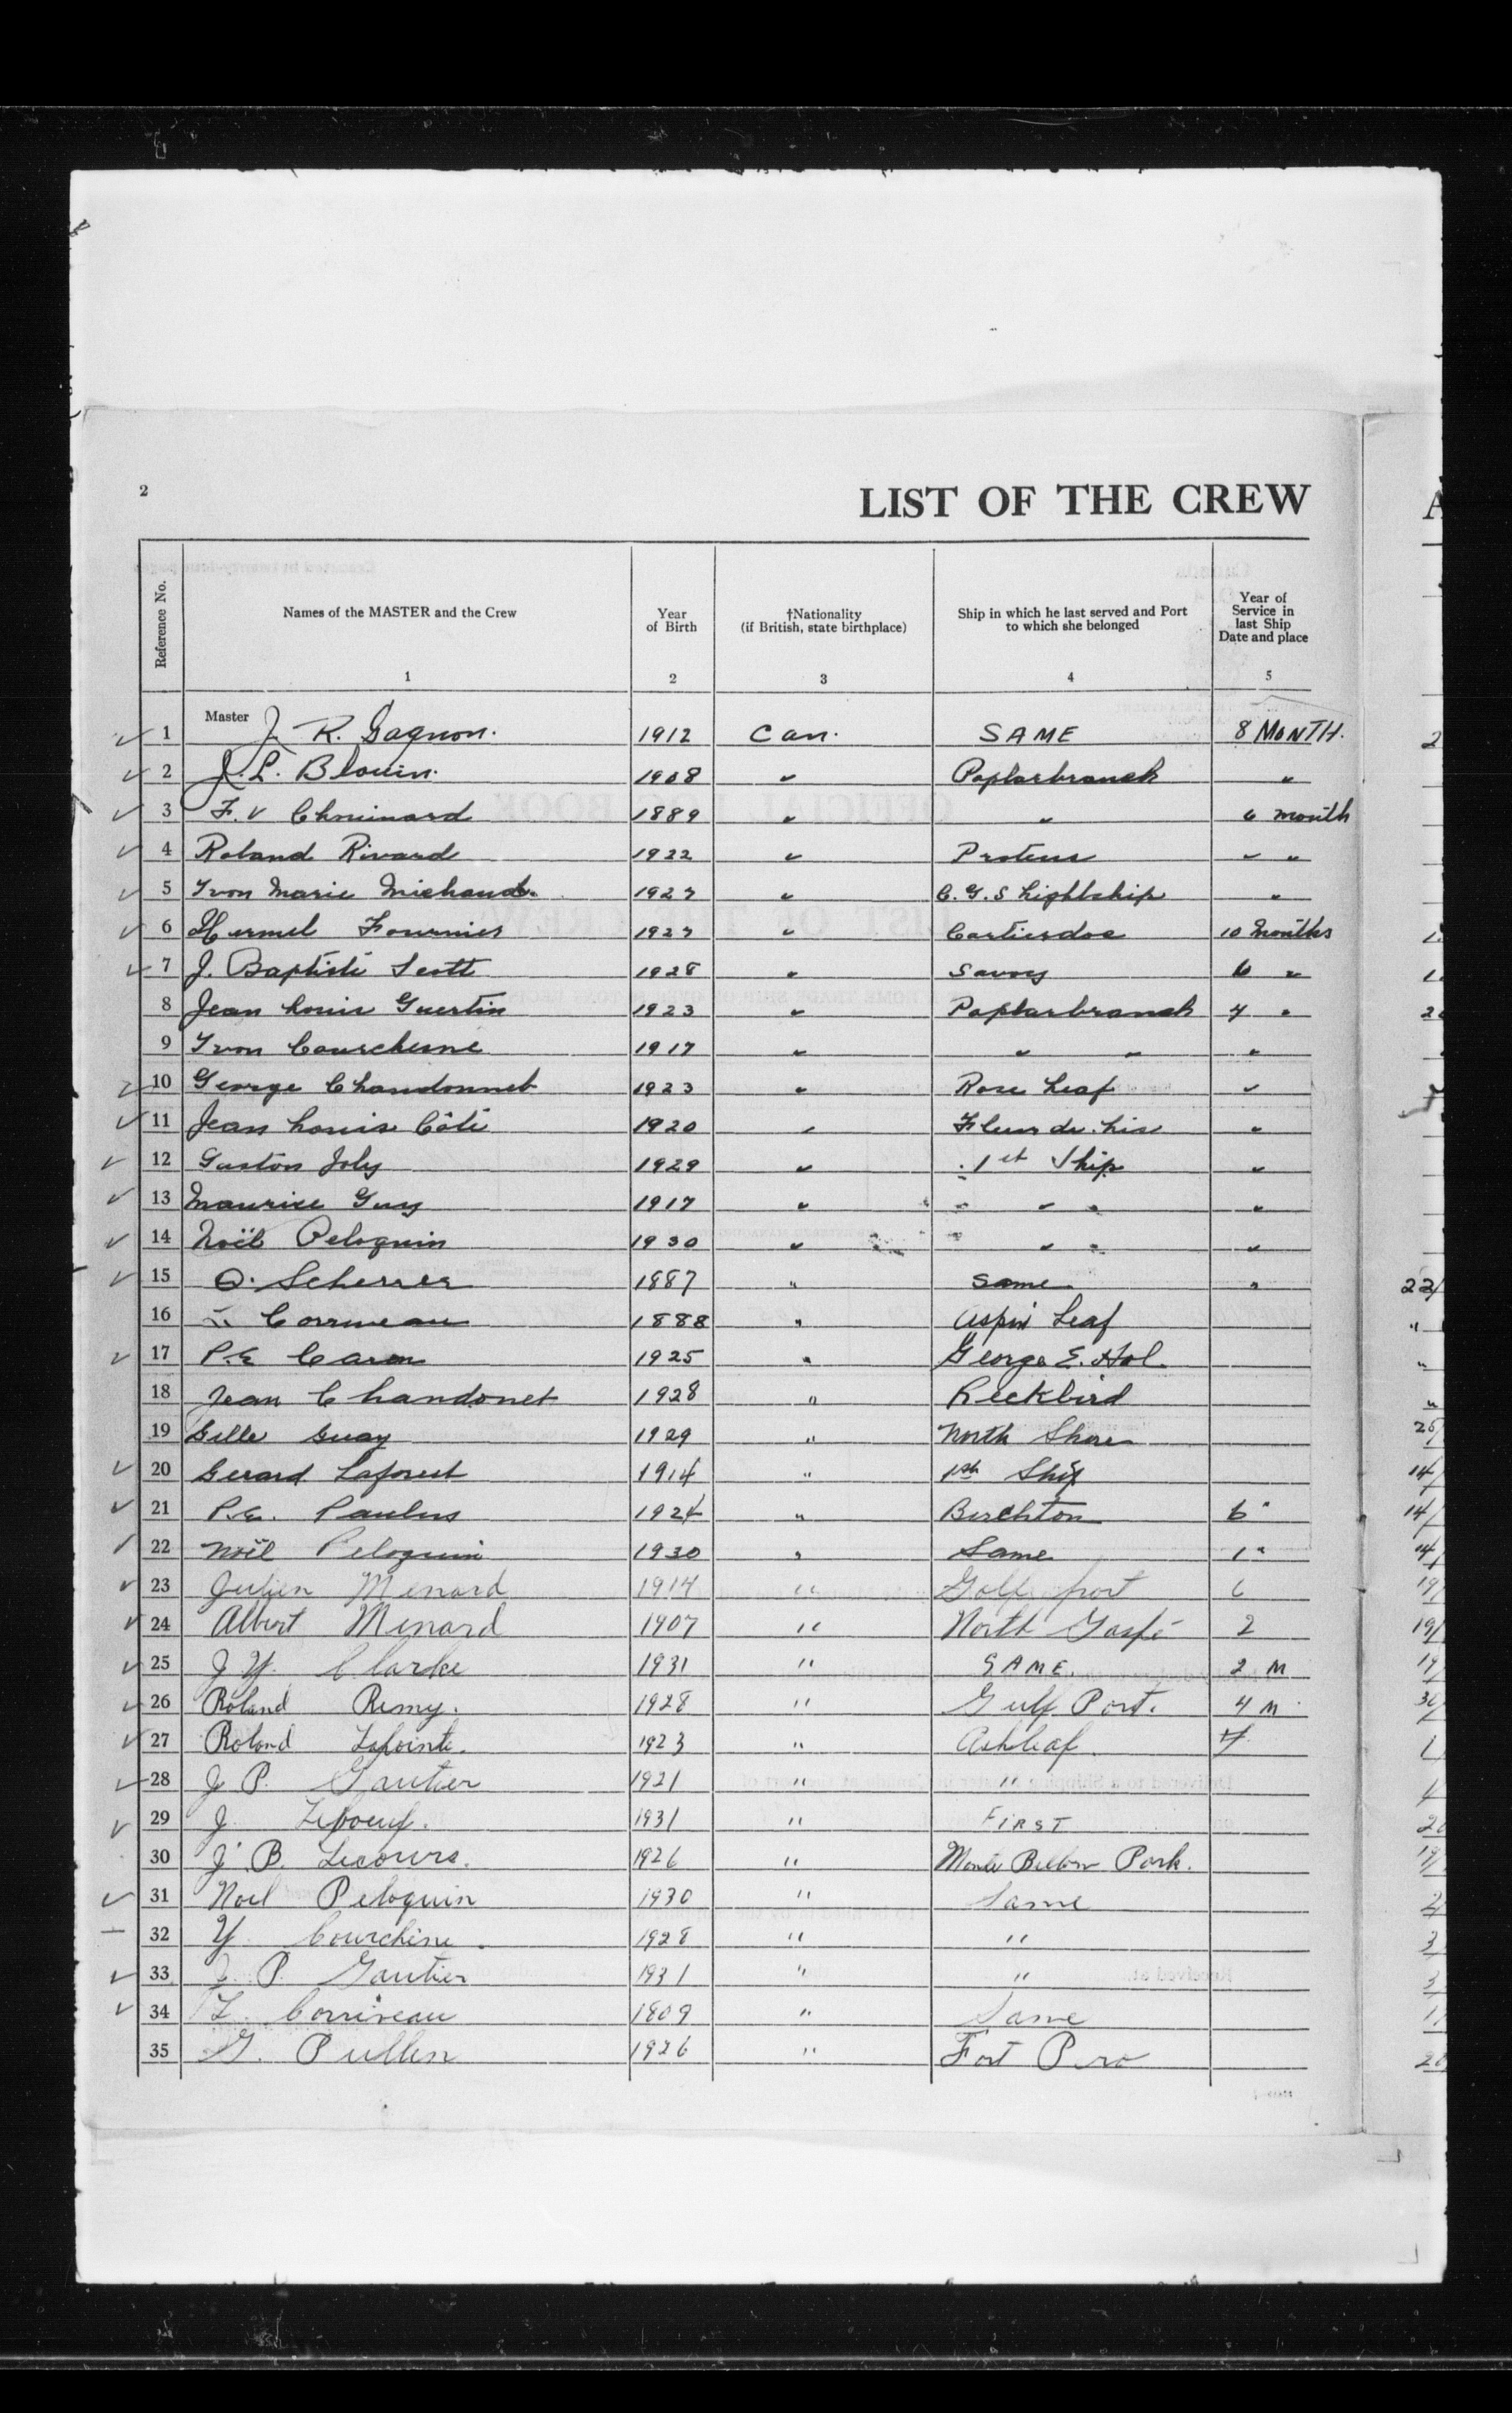 2
LIST OF THE CREW
A
Reference No.
Names of the MASTER and the Crew
Year of Birth
†Nationality (if British, state birthplace)
Ship in which he last served and Port to which she belonged
Year of Service in last Ship Date and place
1 2 3 4 5
1 Master J. R. Gagnon. 1912 Can. SAME 8 MONTH.
2 J. L. Blouin. 1908 " Poplarbranch "
3 F. V Chouinard 1889 " " 6 month
4 Roland Rivard 1922 " Proteus " "
5 Yvon Marie Michaud. 1927 " C.G.S Lightship "
6 Hermel Fournier 1927 " Cartierdoc 10 Months
7 J. Baptiste Scott 1928 " Savoy 6 "
8 Jean Louis Guertin 1923 " Poplarbranch 4 "
9 Yvon Courchesne 1917 " " " "
10 George Chandonnet 1923 " Rose Leaf "
11 Jean Louis Côté 1920 " Fleur de Lis "
12 Gaston Joly 1929 " 1st Ship "
13 Maurice Guy 1917 " " " " "
14 Noël Peloquin 1930 " " " " "
15 O. Scherrer 1887 " Same "
16 Corriveau 1888 " Aspin Leaf
17 P.E Caron 1925 " George E. Hol.
18 Jean Chandonet 1928 " Reckbird
19 Gille Guay 1929 " North Shore
20 Gerard Laforest 1914 " 1st Ship
21 P.E. Paulus 1924 " Birchton 6 "
22 Noël Peloquin 1930 " Same 1 "
23 Julien Menard 1914 " Golf port 6
24 Albert Menard 1907 " North Gaspé 2
25 J Y. Clarke 1931 " SAME. 2 M
26 Roland Remy. 1928 " Gulf Port. 4 M
27 Roland Lapointe. 1923 " Ashleaf. 7
28 J P. Gautier 1921 " "
29 J. Leboeuf. 1931 " FIRST
30 J. B. Lecours. 1926 " Park.
31 Noel Peloquin 1930 " Same
32 Y. Courchene. 1928 " "
33 J. P. Gautier 1931 " "
34 L. Corriveau 1809 " Same
35 G. Pullen 1926 " Fort